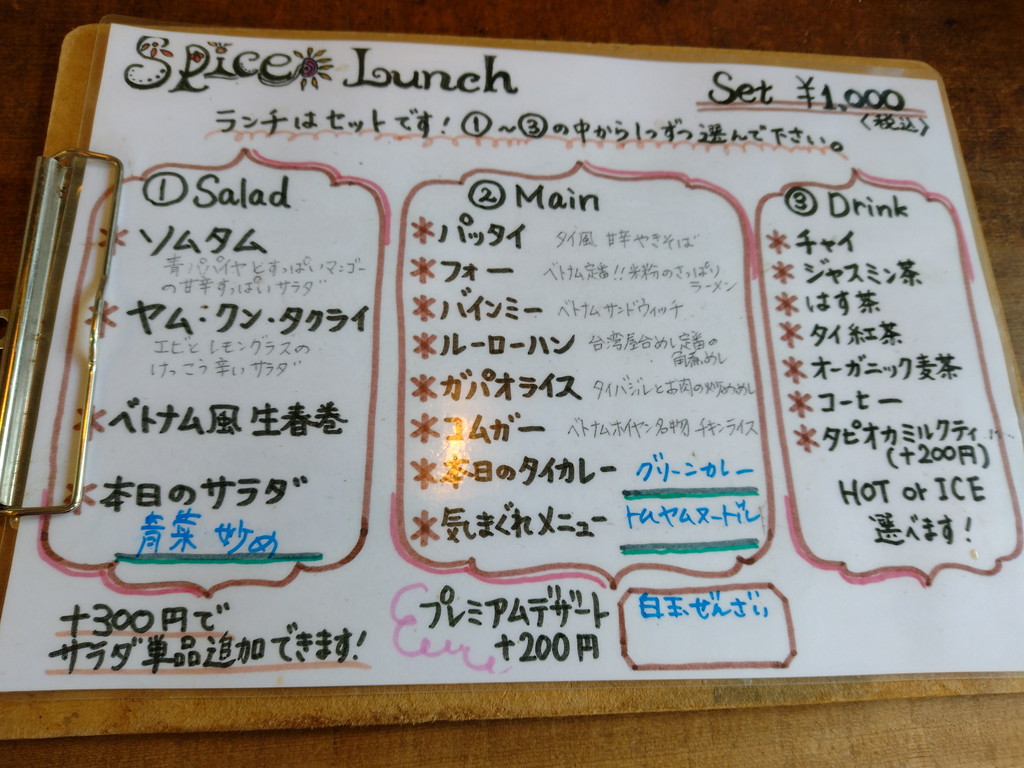 Spice Lunch
Set ¥1,000
〈税込〉
ランチはセットです！①〜③の中から1つずつ選んで下さい。
① Salad
＊ソムタム
青パパイヤとすっぱいマンゴー
の甘辛すっぱいサラダ
＊ヤム・クン・タクライ
エビとレモングラスの
けっこう辛いサラダ
＊ベトナム風 生春巻
＊本日のサラダ
青菜 炒め
② Main
＊パッタイ タイ風 甘辛やきそば
＊フォー ベトナム定番!!米粉のさっぱり
ラーメン
＊バインミー ベトナムサンドウィッチ
＊ルーローハン 台湾屋台めし定番の
角煮めし
＊ガパオライス タイバジルとお肉の炒めめし
＊コムガー ベトナムホイヤン名物 チキンライス
＊本日のタイカレー グリーンカレー
＊気まぐれメニュー トムヤムヌードル
③ Drink
＊チャイ
＊ジャスミン茶
＊はす茶
＊タイ紅茶
＊オーガニック麦茶
＊コーヒー
＊タピオカミルクティ
(+200円)
HOT or ICE
選べます！
+300円で
サラダ単品追加できます！
プレミアムデザート
+200円
白玉ぜんざい